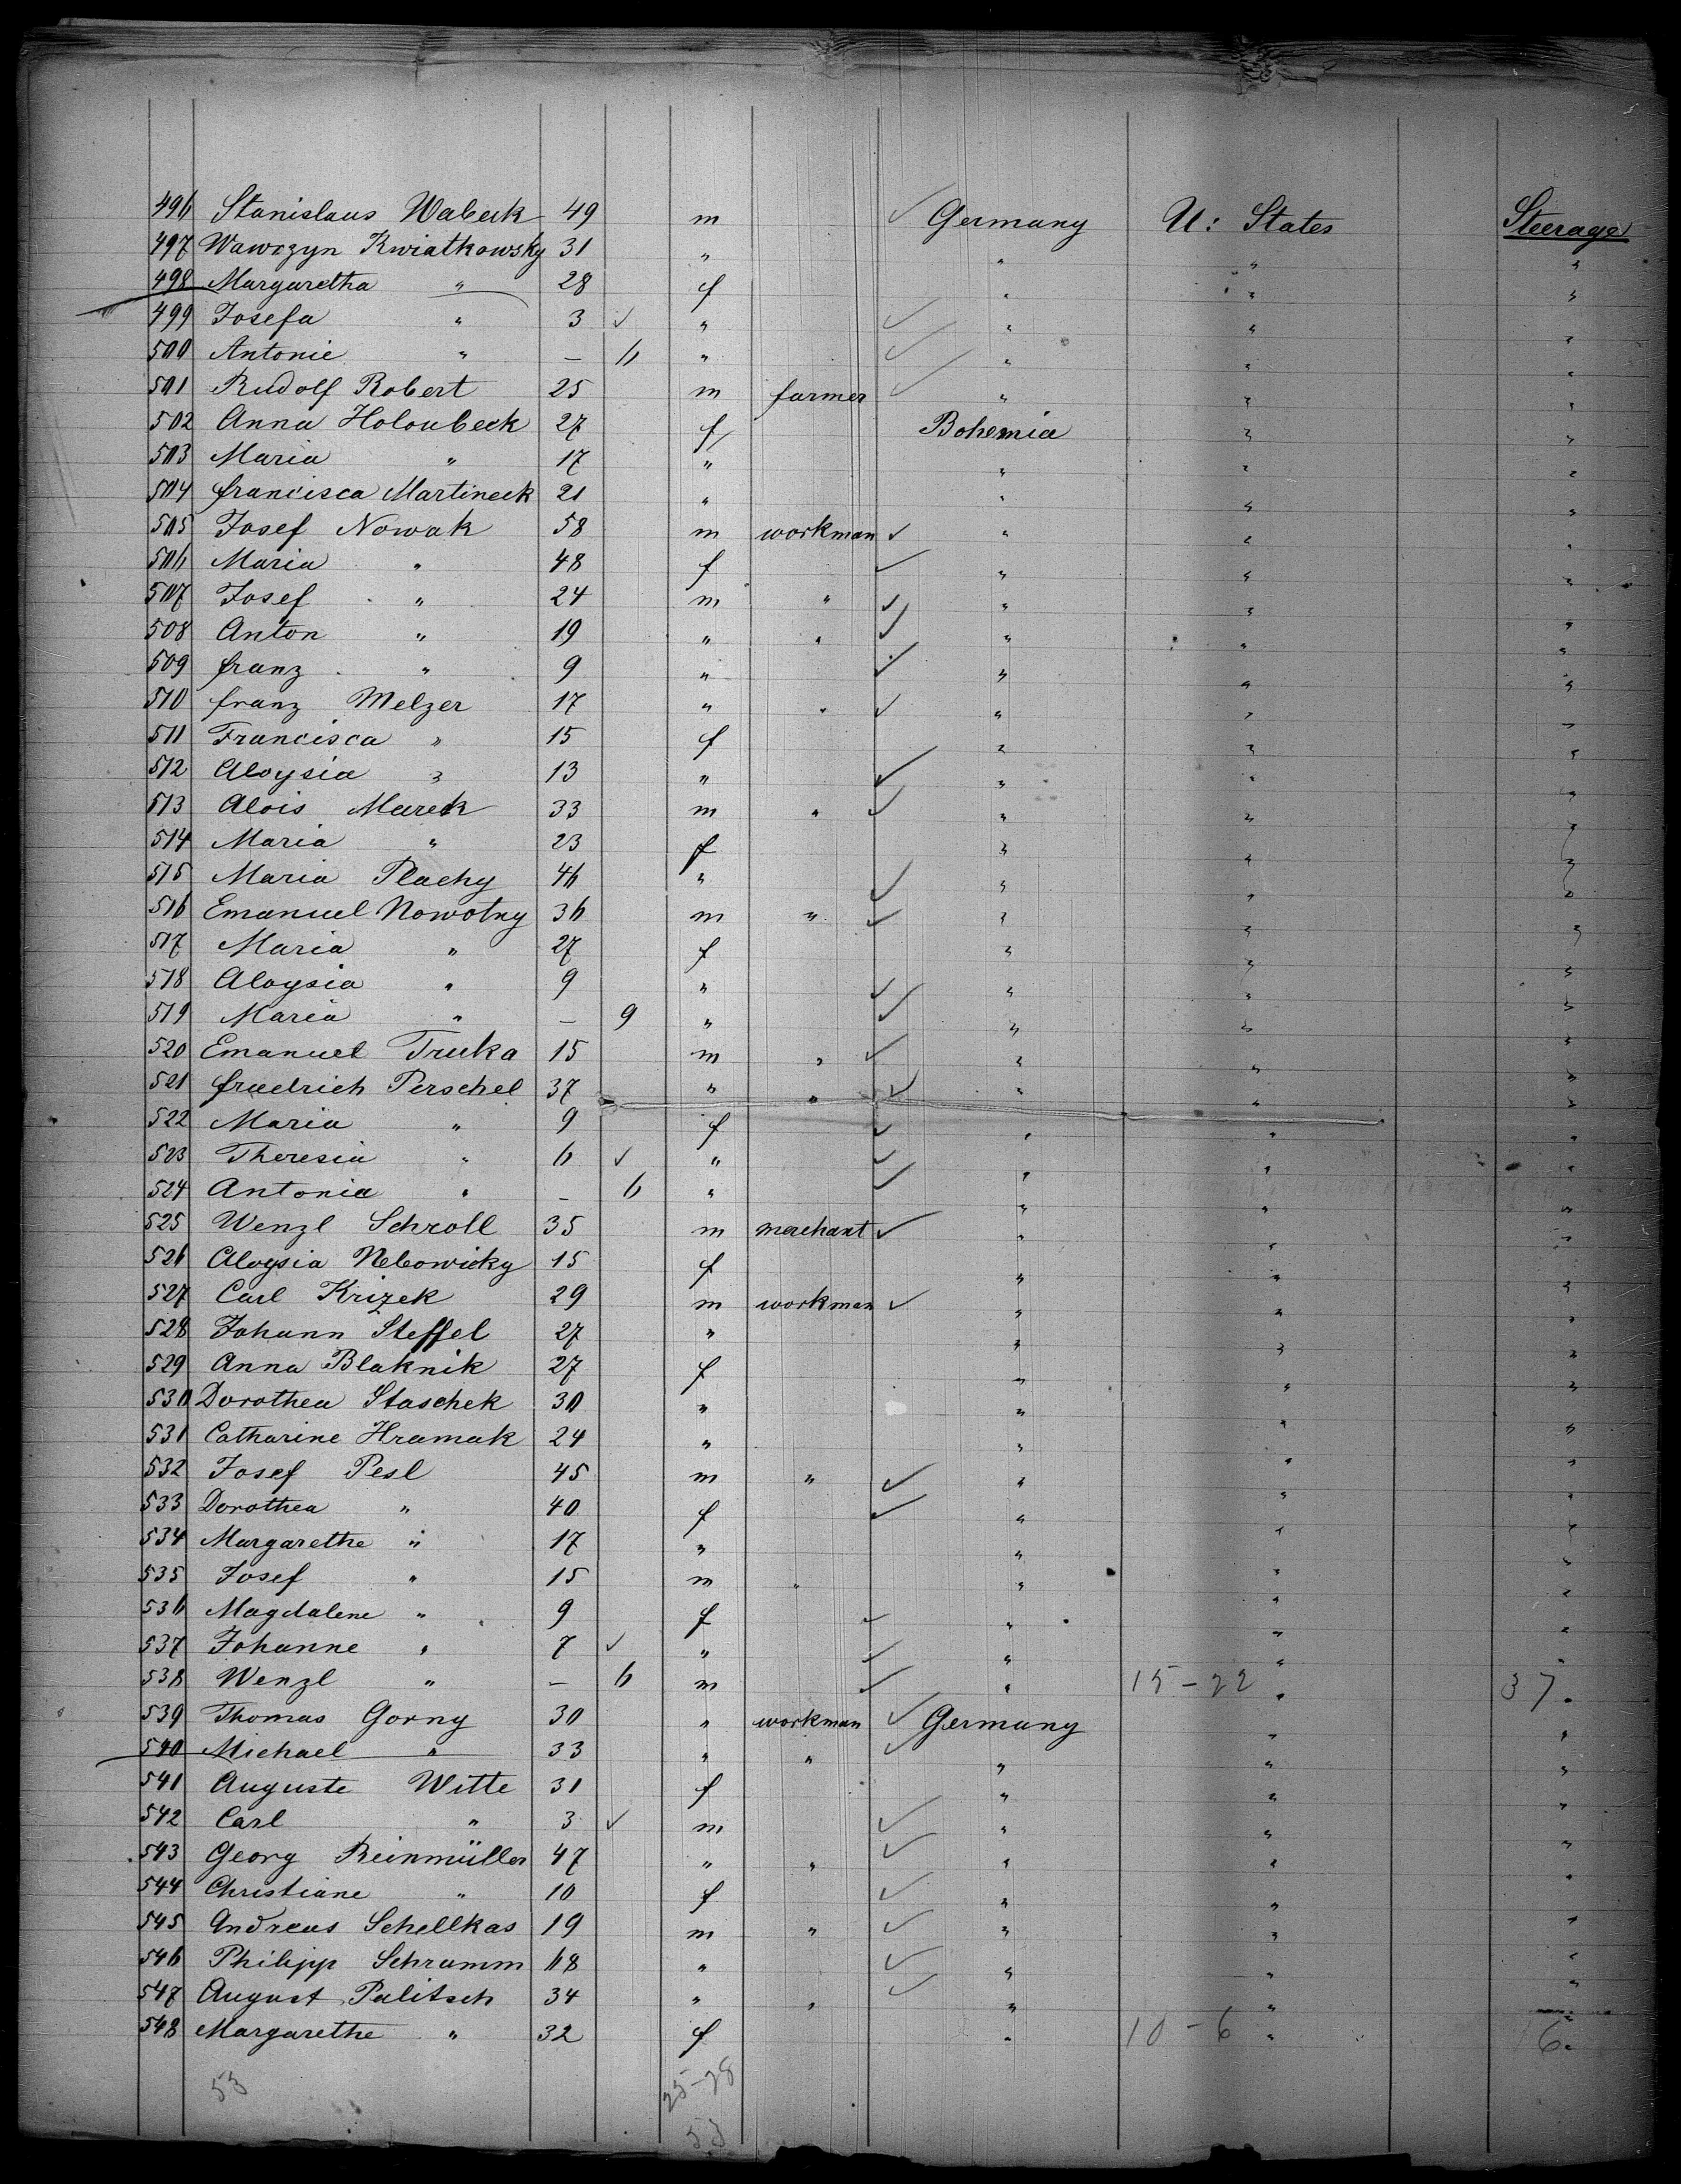 496 Stanislaus Wabeck 49 m ✓ Germany U: States Steerage
497 Wawrzyn Kwiatkowsky 31 " " " "
498 Margaretha " 28 f " " "
499 Josefa " 3 ✓ " ✓ " " "
500 Antonie " — 6 " ✓ " " "
501 Rudolf Robert 25 m farmer ✓ " " "
502 Anna Holoubeck 27 f Bohemia " "
503 Maria " 17 " " " "
504 Francisca Martineck 21 " " " "
505 Josef Nowak 58 m workman ✓ " " "
506 Maria " 48 f ✓ " " "
507 Josef " 24 m " ✓ " " "
508 Anton " 19 " " ✓ " " "
509 Franz " 9 " ✓ " " "
510 Franz Melzer 17 " " ✓ " " "
511 Francisca " 15 f " " "
512 Aloysia " 13 " ✓ " " "
513 Alois Marek 33 m " ✓ " " "
514 Maria " 23 f " " "
515 Maria Plachy 46 " ✓ " " "
516 Emanuel Nowotny 36 m " ✓ " " "
517 Maria " 27 f " " "
518 Aloysia " 9 " ✓ " " "
519 Maria " — 9 " ✓ " " "
520 Emanuel Truka 15 m " ✓ " " "
521 Friedrich Perschel 37 " " ✓ " " "
522 Maria " 9 f ✓ " " "
523 Theresia " 6 ✓ " ✓ " " "
524 Antonia " — 6 " ✓ " " "
525 Wenzl Schroll 35 m merchant ✓ " " "
526 Aloysia Nebowicky 15 f " " "
527 Carl Krizek 29 m workman ✓ " " "
528 Johann Steffel 27 " " " "
529 Anna Blaknik 27 f " " "
530 Dorothea Staschek 30 " " " "
531 Catharine Hramak 24 " " " "
532 Josef Pesl 45 m " ✓ " " "
533 Dorothea " 40 f ✓ " " "
534 Margarethe " 17 " " " "
535 Josef " 15 m " " " "
536 Magdalene " 9 f ✓ " " "
537 Johanne " 7 ✓ " ✓ " " "
538 Wenzl " — 6 m ✓ " 15-22 " 37 "
539 Thomas Gorny 30 " workman ✓ Germany " "
540 Michael " 33 " " ✓ " " "
541 Auguste Witte 31 f " " "
542 Carl " 3 ✓ m ✓ " " "
543 Georg Reinmüller 47 " " ✓ " " "
544 Christiane " 10 f ✓ " " "
545 Andreas Schellkas 19 m " ✓ " " "
546 Philipp Schramm 68 " ✓ " " "
547 August Palitsch 34 " " ✓ " " "
548 Margarethe " 32 f " 10-6 " 16 "
53 25-28
53